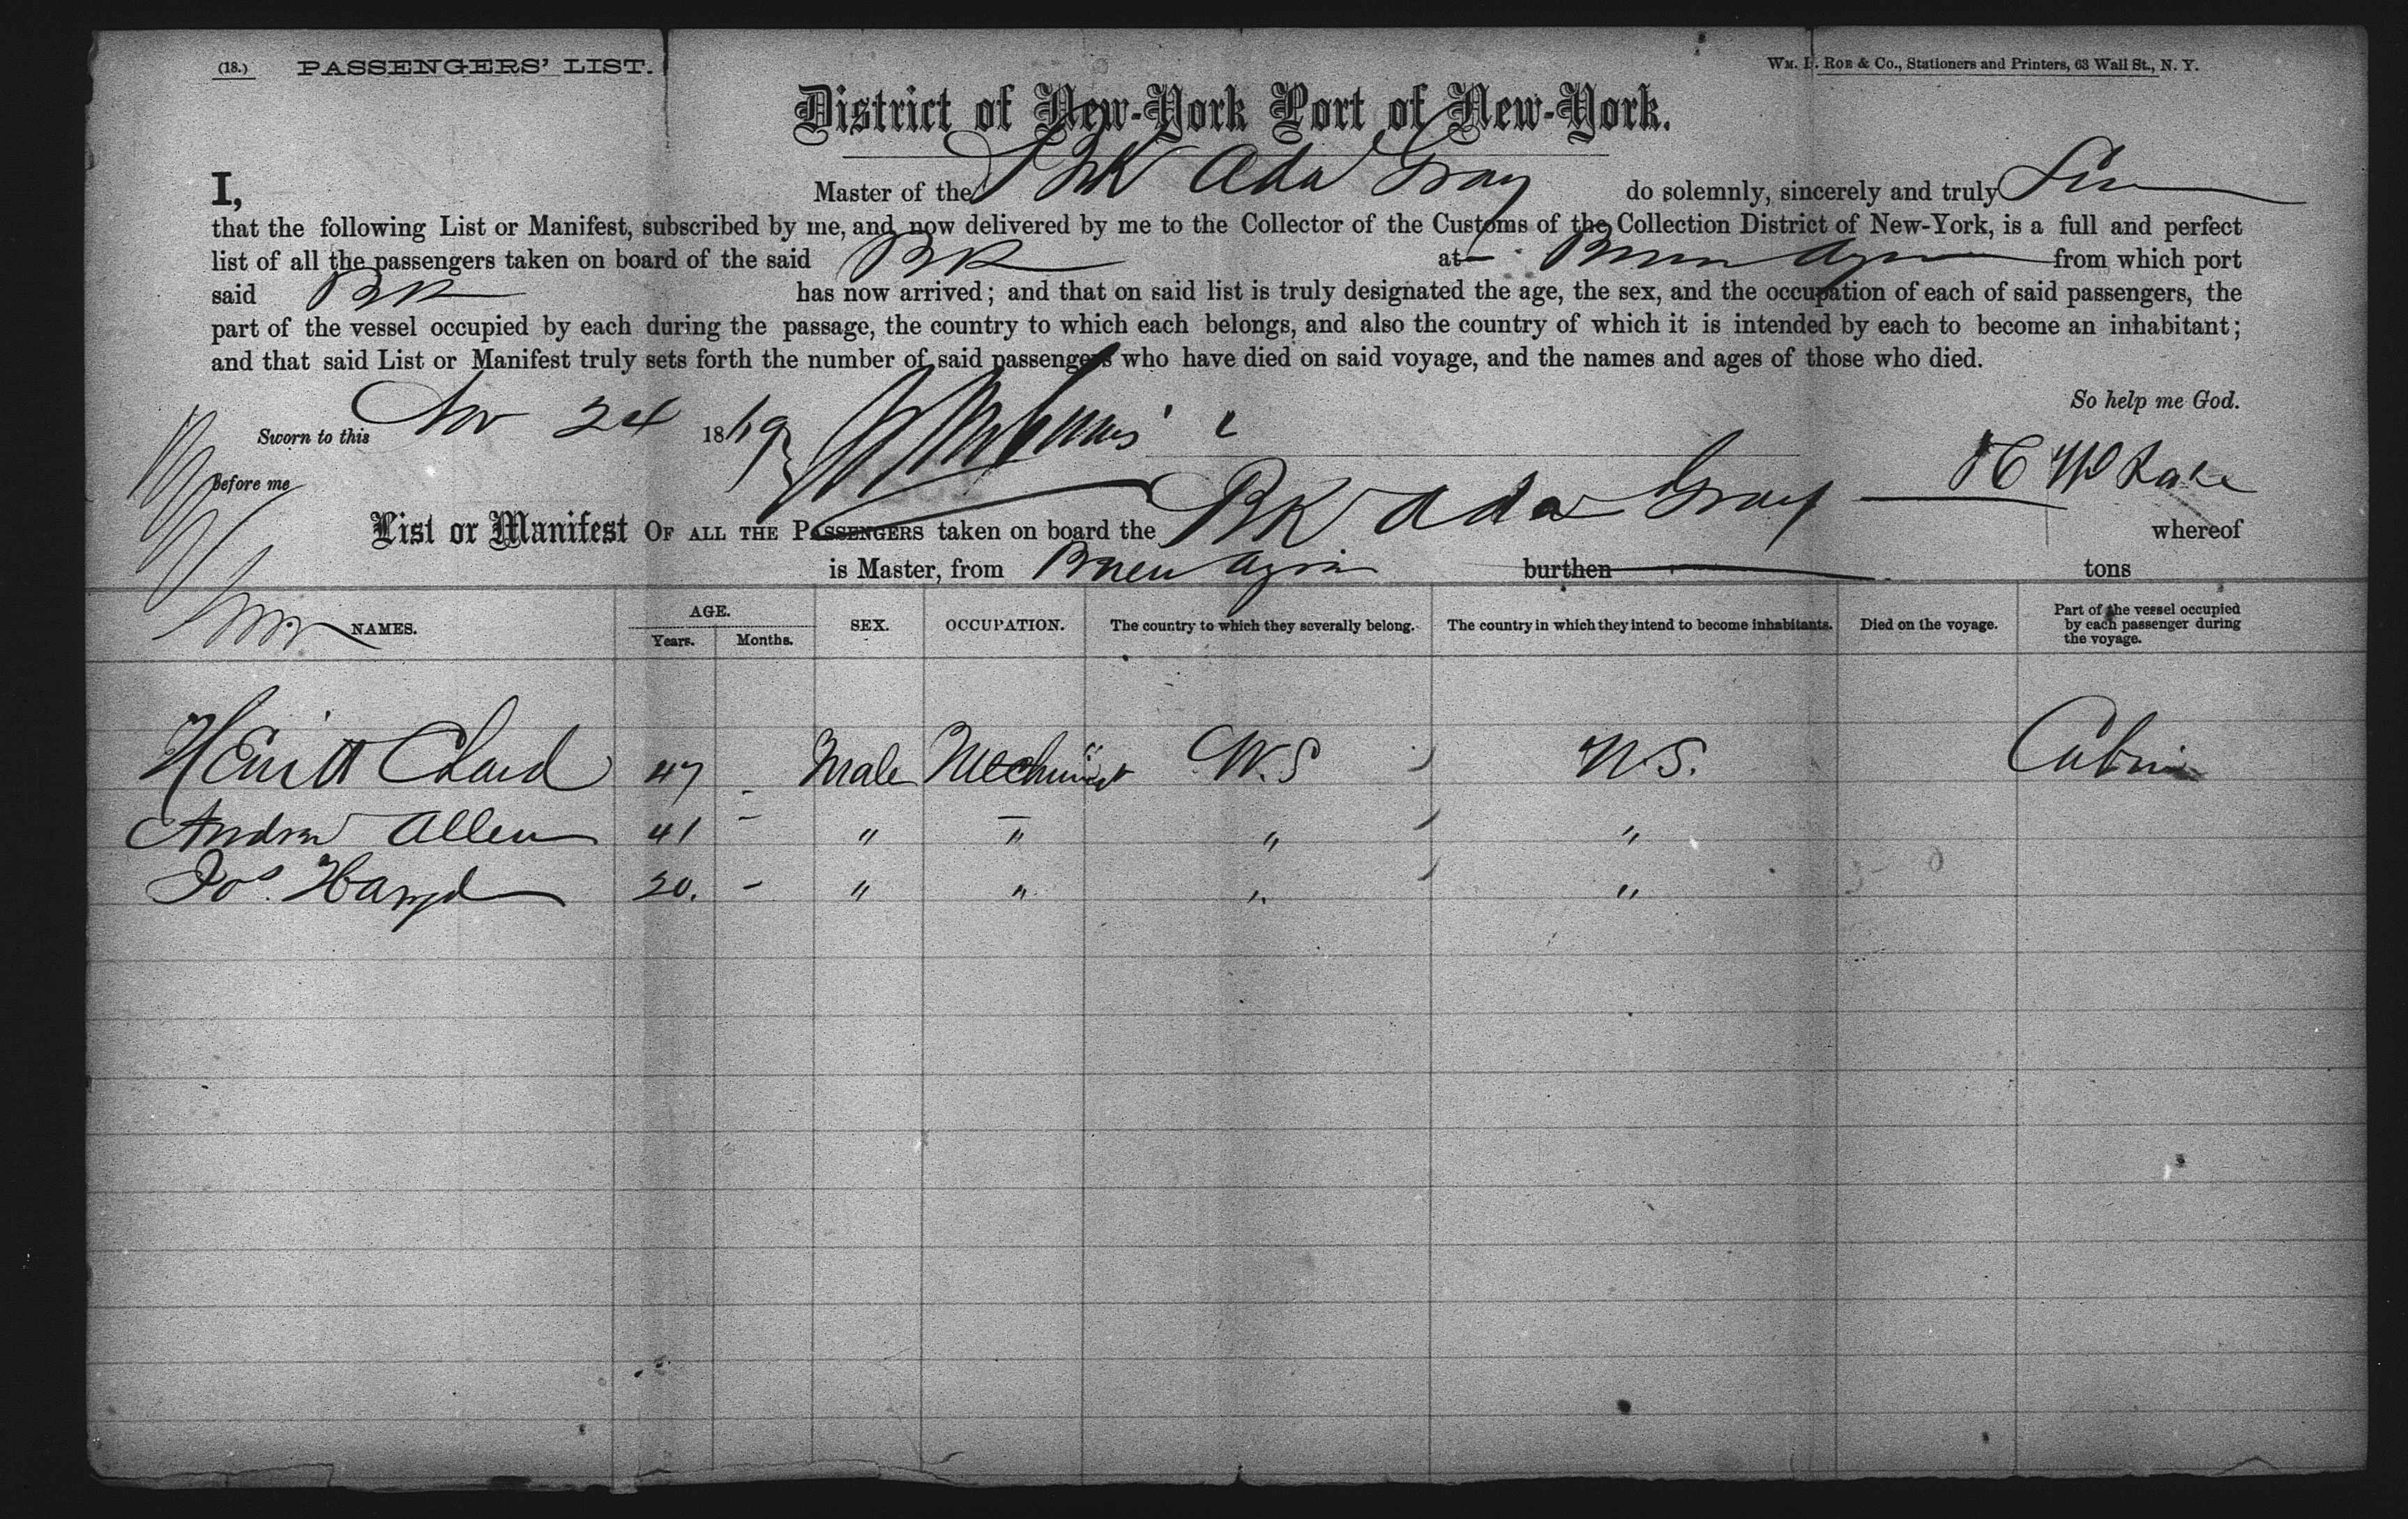 (18.) PASSENGERS' LIST.
WM. L. ROE & Co., Stationers and Printers, 63 Wall St., N. Y.
District of New-York Port of New-York.
I, Master of the Bk Ada Gray do solemnly, sincerely and truly
that the following List or Manifest, subscribed by me, and now delivered by me to the Collector of the Customs of the Collection District of New-York, is a full and perfect
list of all the passengers taken on board of the said Bk at from which port
said Bk has now arrived; and that on said list is truly designated the age, the sex, and the occupation of each of said passengers, the
part of the vessel occupied by each during the passage, the country to which each belongs, and also the country of which it is intended by each to become an inhabitant;
and that said List or Manifest truly sets forth the number of said passengers who have died on said voyage, and the names and ages of those who died.
So help me God.
Sworn to this Nov 24 18
Before me
List or Manifest OF ALL THE PASSENGERS taken on board the Bk Ada Gray whereof
is Master, from burthen tons
NAMES. AGE. Years. Months. SEX. OCCUPATION. The country to which they severally belong. The country in which they intend to become inhabitants. Died on the voyage. Part of the vessel occupied by each passenger during the voyage.
47 - Male U.S U.S. Cabin
Andrew Allen 41 - " " " "
Jos. 20. - " " " "